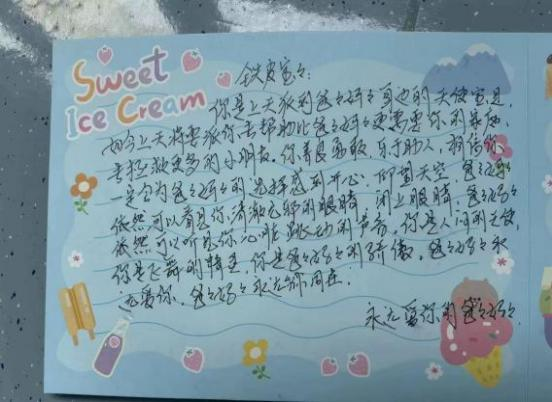 Sweet
Ice Cream
全皮宝々:
你是上天派到爸々妈々身边的天使宝贝,
如今上天将要派你去帮助比爸々妈々更需要你的
去拯救更多的小朋友。你善良勇敢,乐于助人,相信你
一定会为爸々妈々的选择感到开心。仰望天空,爸々妈々
依然可以看见你清澈无邪的眼睛,闭上眼睛,爸々妈々
依然可以听见你心脏跳动的声音,你是人间的天使,
你是飞舞的精灵,你是爸々妈々的骄傲,爸々妈々永
远爱你,爸々妈々永远和你同在.
永远爱你的爸々妈々.